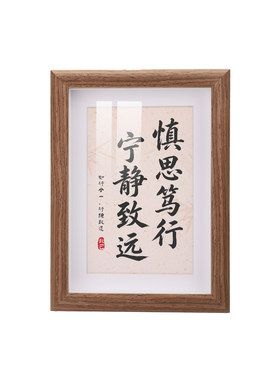 慎思笃行
宁静致远